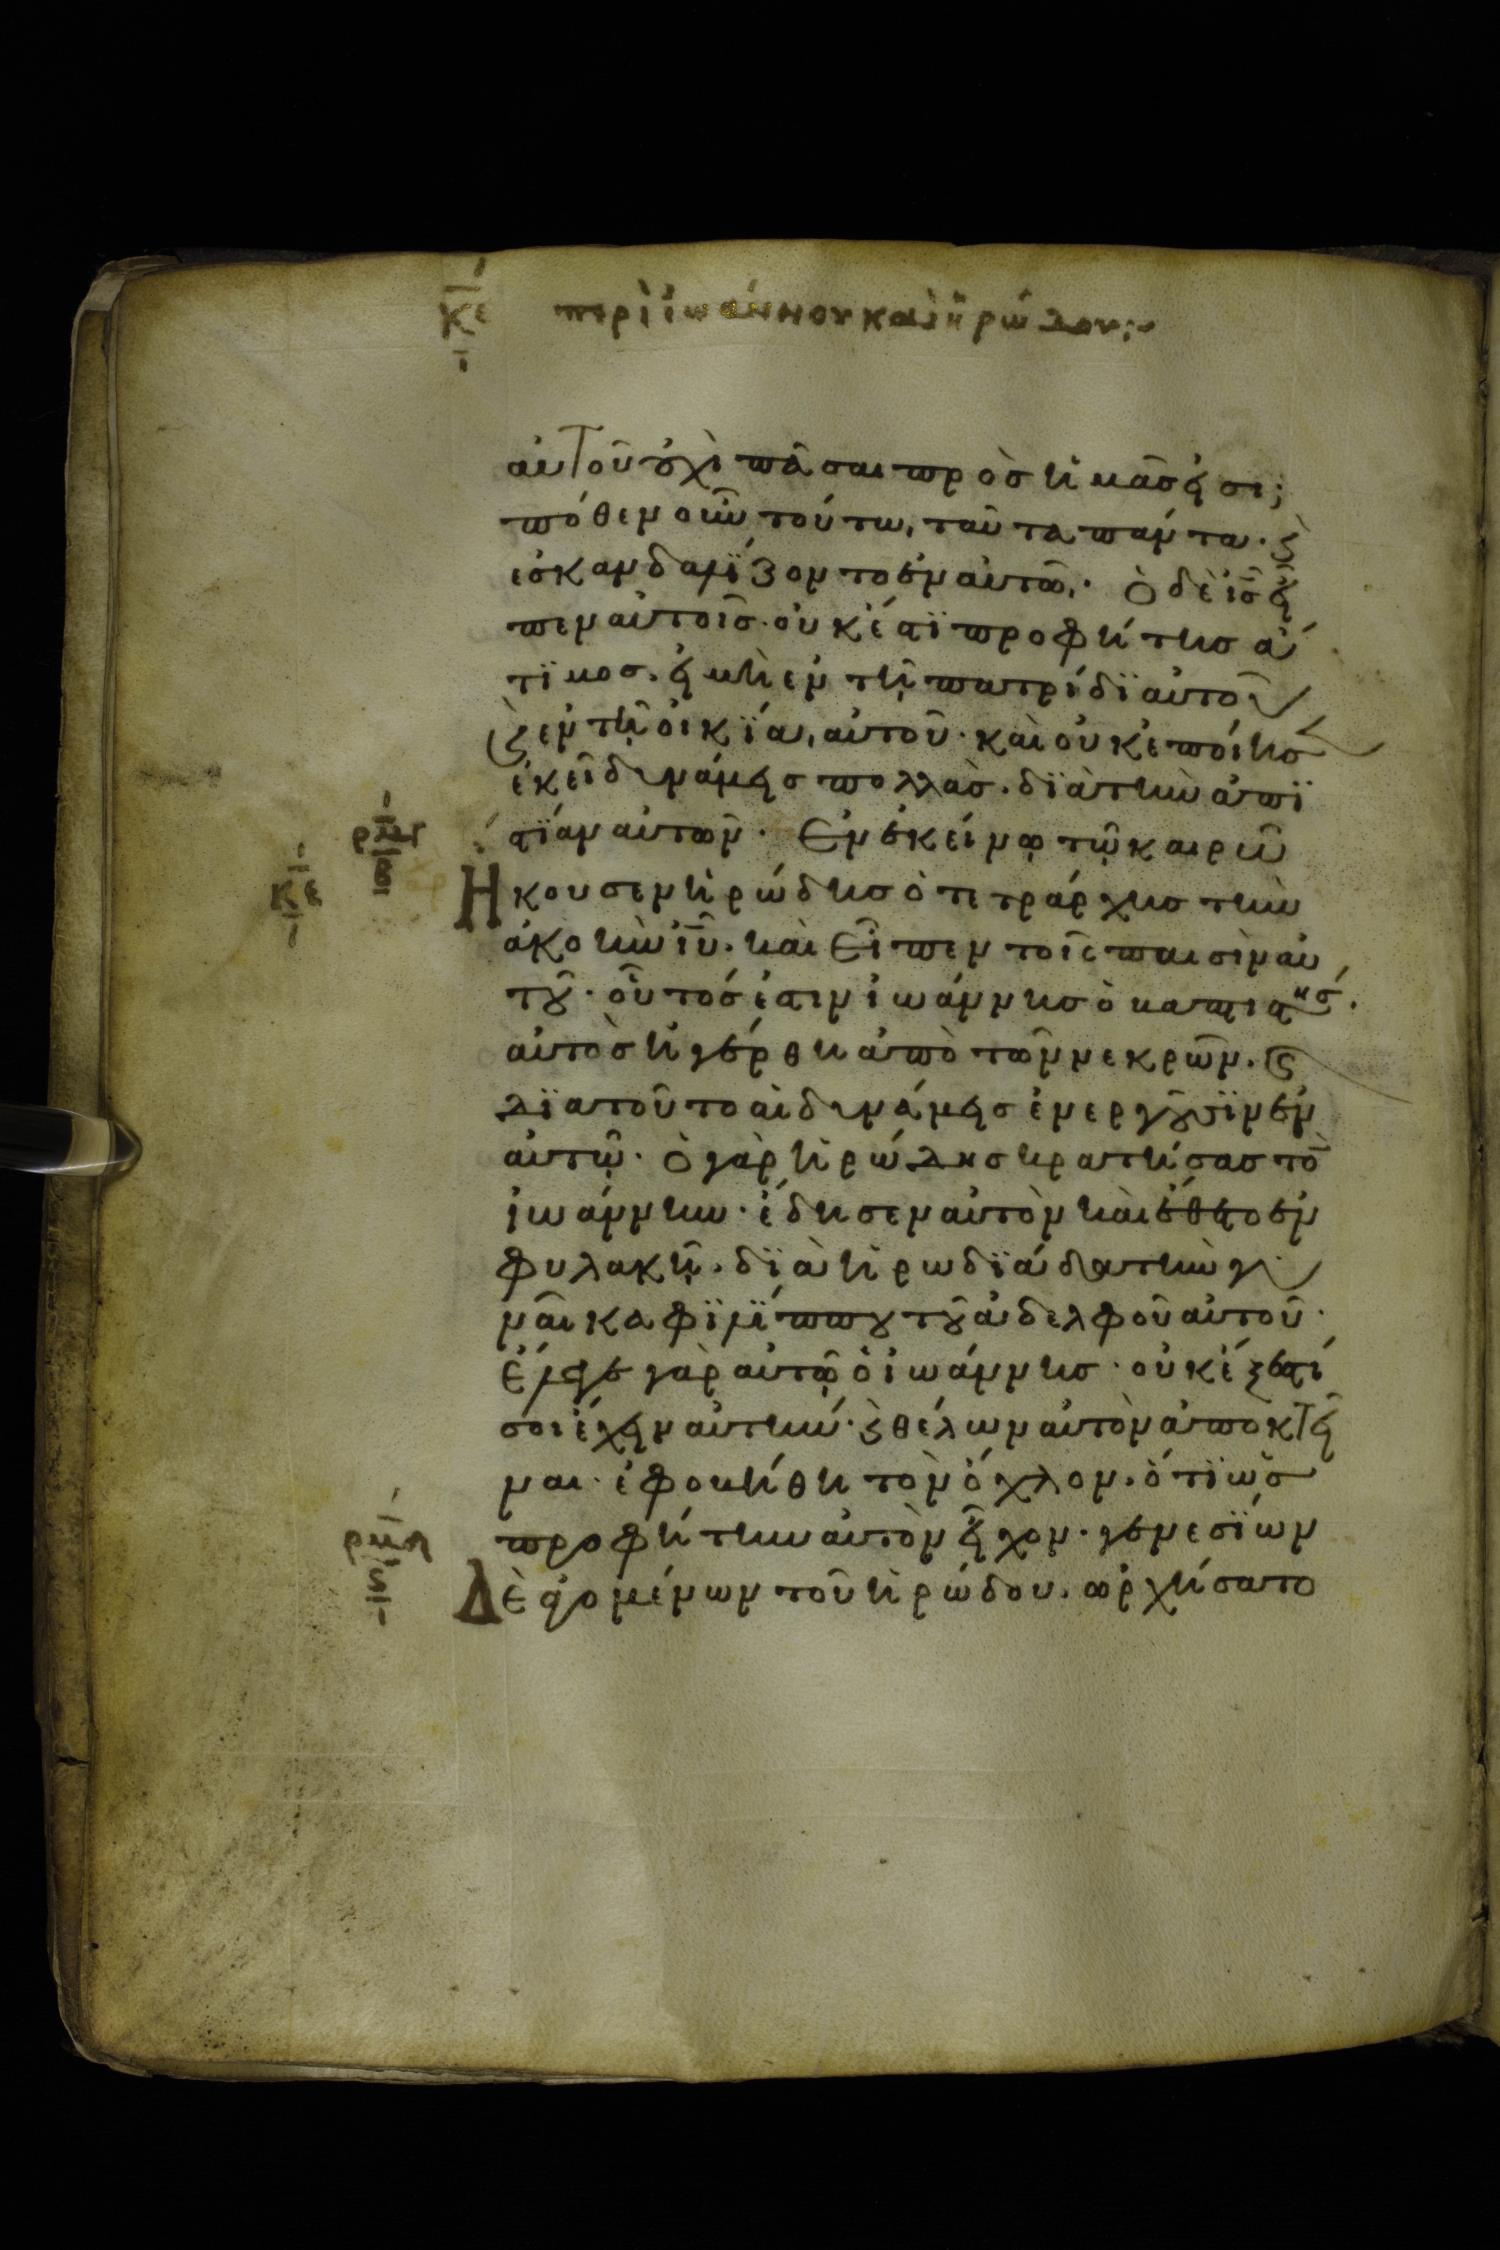 κε περὶ ἰωάννου καὶ ἡρώδου
αὐτοῦ οὐχὶ πᾶσαι πρὸς ἡμᾶς εἰσι;
πόθεν οὖν τούτω, ταῦτα πάντα· ϗ
ἐσκανδαλίζοντο ἐν αὐτῶ· ὁ δὲ ις εἶ
πεν αὐτοῖς· οὐκ έστι προφήτης ἄ
τιμος. εἰ μὴ ἐν τῆ πατρίδι αὐτοῦ
ϗ ἐν τῆ οἰκία αὐτοῦ· καὶ οὐκ ἐποίησ
ἐκεῖ δυνάμεις πολλὰς· διὰ τὴν ἀπι
στίαν αὐτῶν· Ἐν ἐκείνω τῶ καιρῶ
ρμγ
β
κε
Ηκουσεν ἡρώδης ὁ τετράρχης τὴν
ἀκοὴν ιυ· καὶ εἶπεν τοῖς παισὶν αὐ
τοῦ· οὗτός ἐστιν ἰωάννης ὁ βαπτιστής·
αὐτὸς ἠγέρθη ἀπὸ τῶν νεκρῶν· ϗ
διατοῦτο αἱ δυνάμεις ἐνεργοῦσιν ἐν
αὐτῶ· ὁ γὰρ ἡρώδης κρατήσας τὸ
ἰωάννην· ἔδησεν αὐτὸν καὶ ἔθετο ἐν
φυλακῆ· διὰ ἡρωδιάδα τὴν γυ
ναῖκα φιλίππου τοῦ ἀδελφοῦ αὐτοῦ·
ἔλεγε γὰρ αὐτῶ ὁ ἰωάννης· οὐκ ἔξεστί
σοι ἔχειν αὐτήν· ϗ θέλων αὐτὸν ἀποκτεῖ
ναι· ἐφοβήθη τὸν ὄχλον· ὅτι ὡς
προφήτην αὐτὸν εἶχον· γενεσίων
ρμδ
ς
Δὲ ἀγομένων τοῦ ἡρώδου· ὠρχήσατο